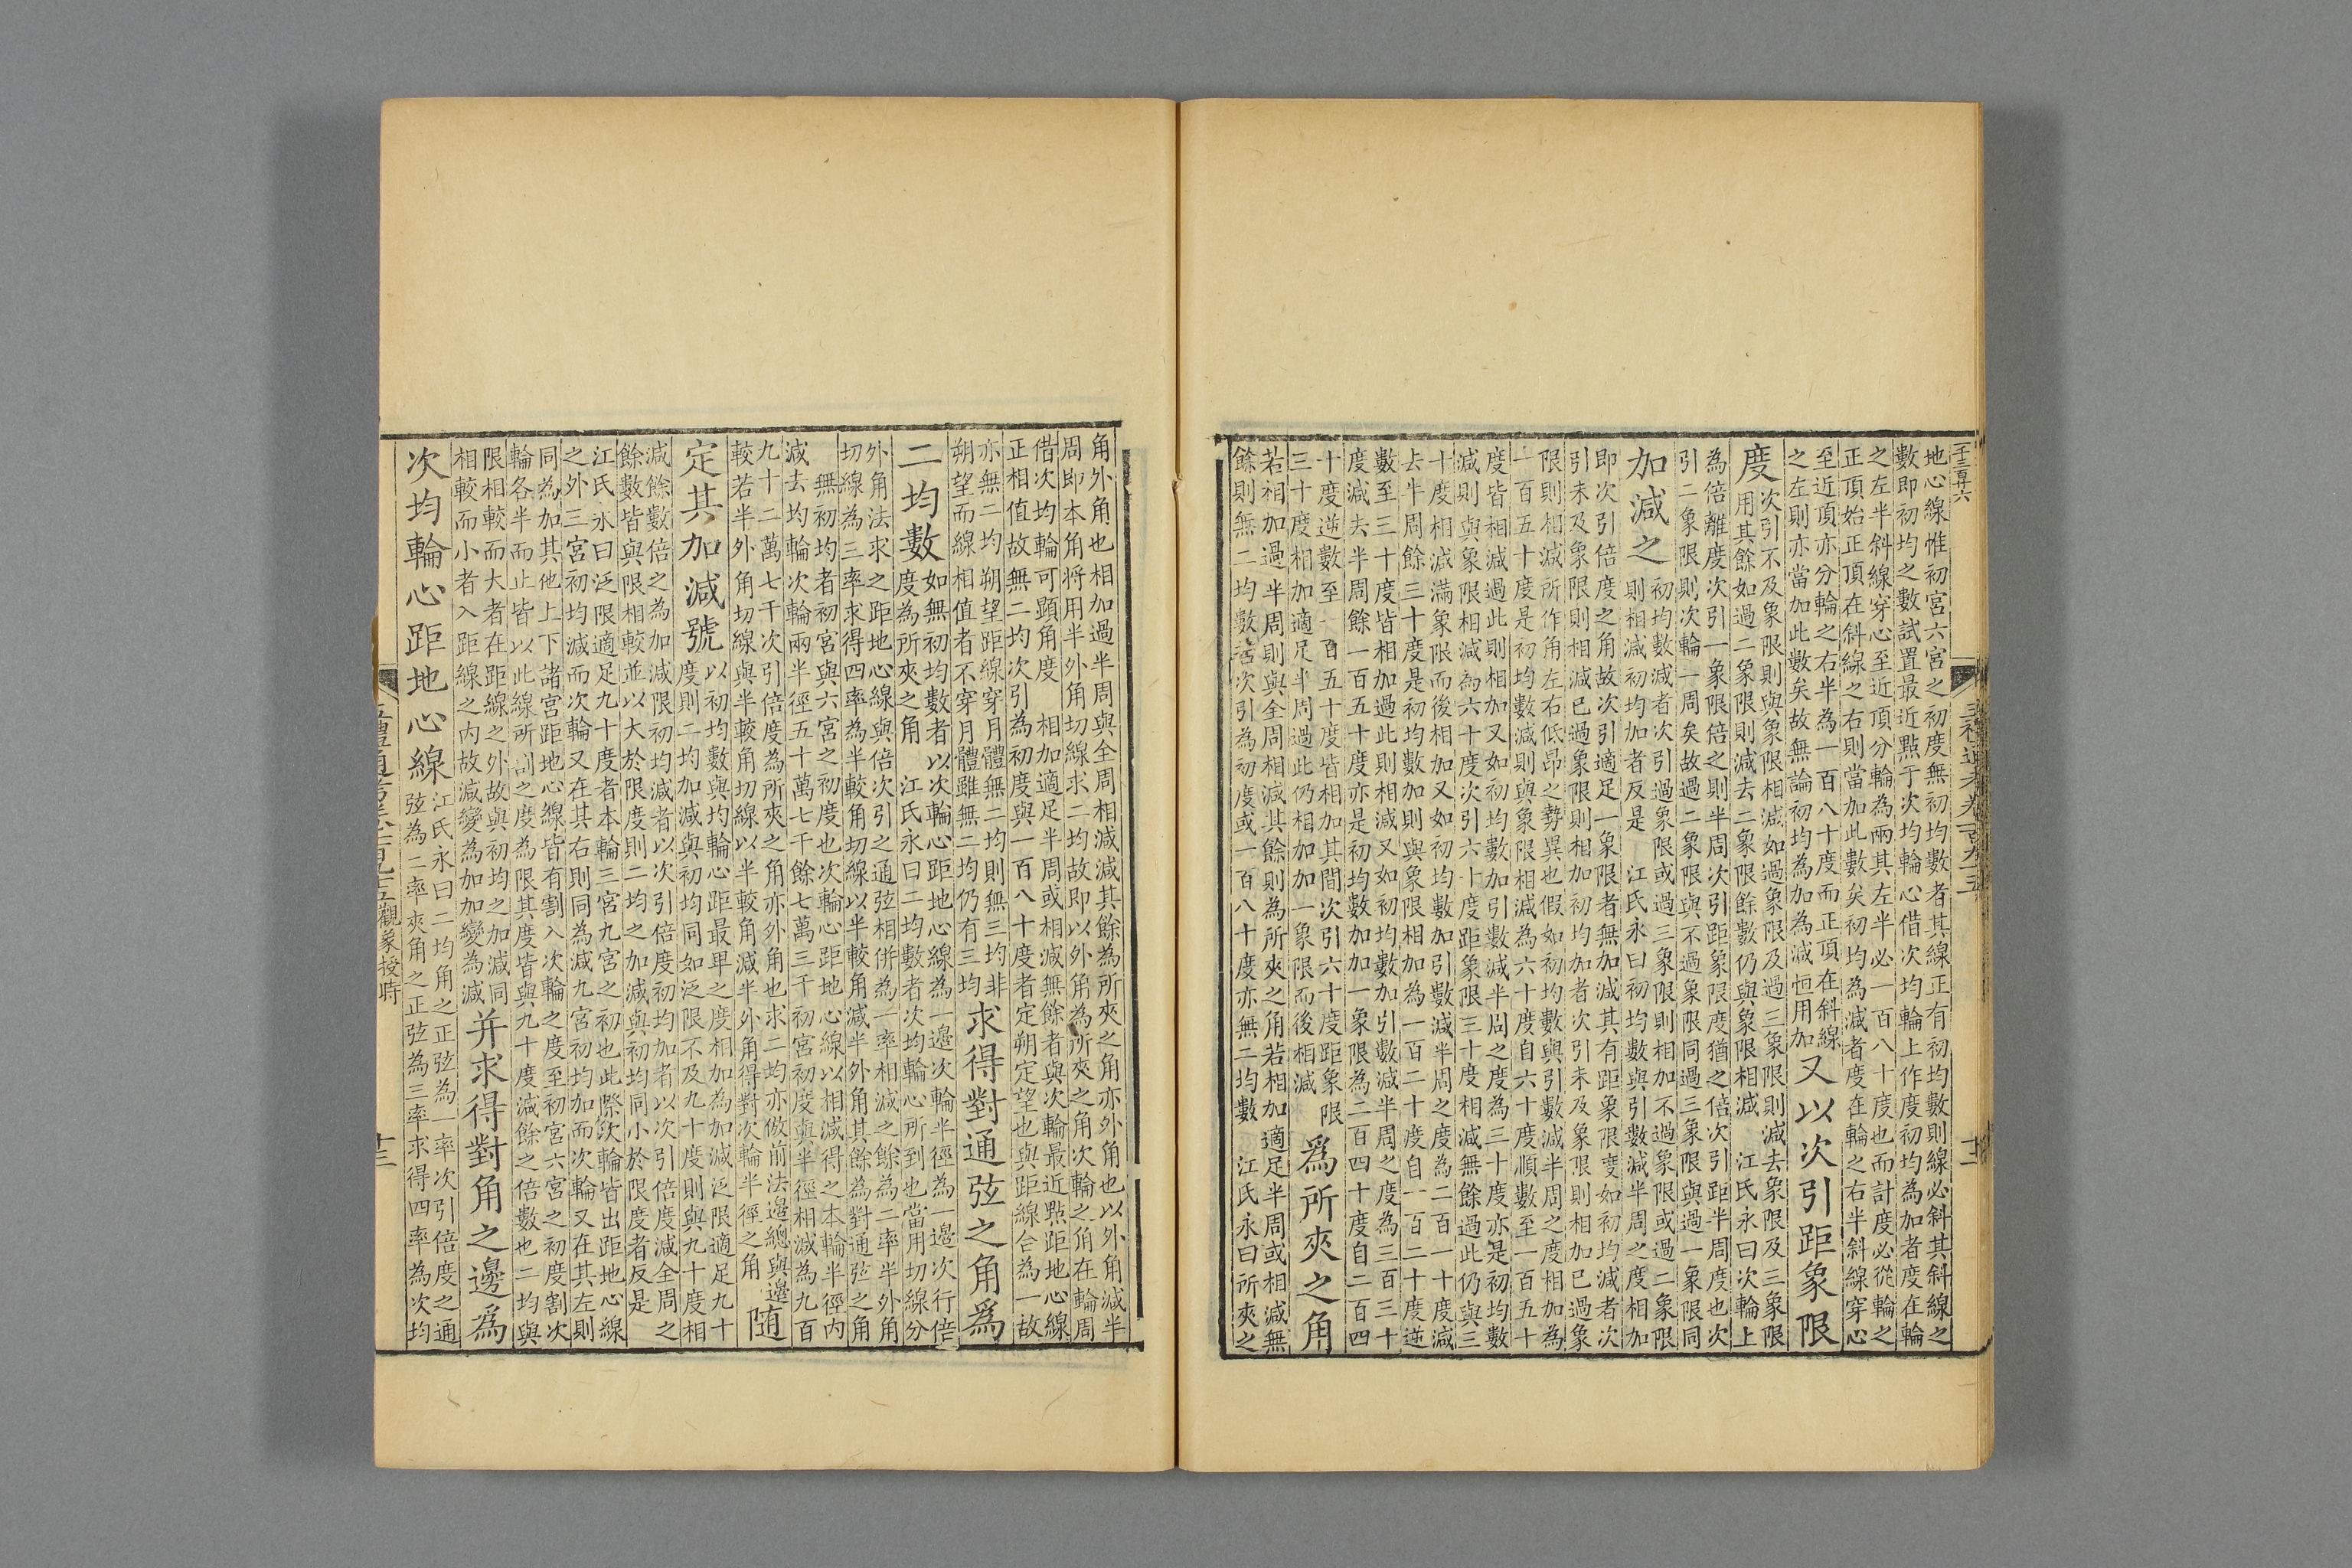 地心線惟初宮六宮之初度無初均數者其線正有初均數則線必斜其斜線之
數即初均之數試置最近點于次均輪心借次均輪上作度初均為加者度在輪
之左半斜線穿心至近頂分輪為兩其左半必一百八十度也而計度必從輪之
正頂始正頂在斜線之右則當加此數矣初均為減者度在輪之右半斜線穿心
至近頂亦分輪之右半為一百八十度而正頂在斜線
之左則亦當加此數矣故無論初均為加為減恒用加
又以次引距象限
度
次引不及象限則與象限相減如過象限及過三象限則減去象限及三象限
用其餘如過二象限則減去二象限餘數仍與象限相減　江氏永曰次輪上
為倍離度次引一象限倍之則半周次引距象限度猶之倍次引距半周度也次
引二象限則次輪一周矣故過二象限與不過象限同過三象限與過一象限同
加減之
初均數減者次引過象限或過三象限則相加不過象限或過二象限
則相減初均加者反是　江氏永曰初均數與引數減半周之度相加
即次引倍度之角故次引適足一象限者無加減其有距象限度如初均減者次
引未及象限則相減已過象限則相加初均加者次引未及象限則相加已過象
限則相減所作角左右低昂之勢異也假如初均數與引數減半周之度相加為
一百五十度是初均數減則與象限相減為六十度自六十度順數至一百五十
度皆相減過此則相加又如初均數加引數減半周之度為三十度亦是初均數
減則與象限相減為六十度次引六十度距象限三十度相減無餘過此仍與三
十度相減滿象限而後相加又如初均數加引數減半周之度為二百一十度減
去半周餘三十度是初均數加則與象限相加為一百二十度自一百二十度逆
數至三十度皆相加過此則相減又如初均數加引數減半周之度為三百三十
度減去半周餘一百五十度亦是初均數加加一象限為二百四十度自二百四
十度逆數至一百五十度皆相加其間次引六十度距象限
三十度相加適足半周過此仍相加加一象限而後相減
為所夾之角
若相加過半周則與全周相減其餘則為所夾之角若相加適足半周或相減無
餘則無二均數若次引為初度或一百八十度亦無二均數　江氏永曰所夾之
角外角也相加過半周與全周相減減其餘為所夾之角亦外角也以外角減半
周即本角將用半外角切線求二均故即以外角為所夾之角次輪之角在輪周
借次均輪可顯角度　相加適足半周或相減無餘者與次輪最近點距地心線
正相值故無二均次引為初度與一百八十度者定朔定望也與距線合為一故
亦無二均朔望距線穿月體無二均則無三均非
朔望而線相值者不穿月體雖無二均仍有三均
求得對通弦之角爲
二均數
如無初均數者以次輪心距地心線為一邊次輪半徑為一邊次行倍
度為所夾之角　江氏永曰二均數者次均輪心所到也當用切線分
外角法求之距地心線與倍次引之通弦相併為一率相減之餘為二率半外角
切線為三率求得四率為半較角切線以半較角減半外角其餘為對通弦之角
無初均者初宮與六宮之初度也次輪心距地心線以相減得之本輪半徑內
減去均輪次輪兩半徑五十萬七千餘七萬三千初宮初度與半徑相減為九百
九十二萬七千次引倍度為所夾之角亦外角也求二均亦倣前法邊總與邊
較若半外角切線與半較角切線以半較角減半外角得對次輪半徑之角
随
定其加減號
以初均數與均輪心距最畢之度相加為加減泛限適足九十
度則二均加減與初均同如泛限不及九十度則與九十度相
減餘數倍之為加減限初均減者以次引倍度初均加者以次引倍度減全周之
餘數皆與限相較並以大於限度則二均之加減與初均同小於限度者反是
江氏永曰泛限適足九十度者本輪三宮九宮之初也此際次輪皆出距地心線
之外三宮初均減而次輪又在其右則同為減九宮初均加而次輪又在其左則
同為加其他上下諸宮距地心線皆有割入次輪之度至初宮六宮之初度割次
輪各半而止皆以此線所割之度為限其度皆與九十度減餘之倍數也二均與
限相較而大者在距線之外故與初均之加減同
相較而小者入距線之內故減變為加加變為減
并求得對角之邊爲
次均輪心距地心線
江氏永曰二均角之正弦為一率次引倍度之通
弦為二率夾角之正弦為三率求得四率為次均
觀象授時
十二